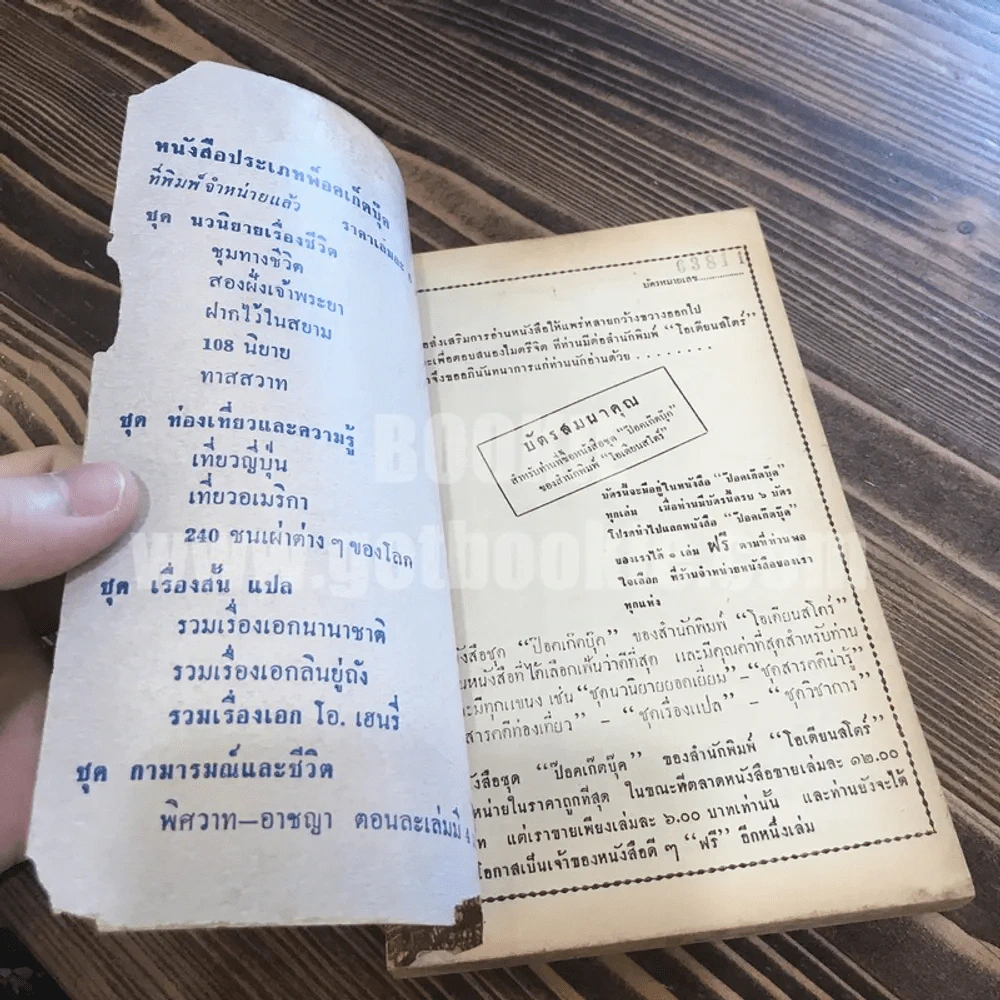 หนังสือประเภทพ็อคเก็ตบุ๊ค
ที่พิมพ์จำหน่ายแล้ว ราคาเล่มละ 6
ชุด นวนิยายเรื่องชีวิต
ชุมทางชีวิต
สองฝั่งเจ้าพระยา
ฝากไว้ในสยาม
108 นิยาย
ทาสสวาท
ชุด ท่องเที่ยวและความรู้
เที่ยวญี่ปุ่น
เที่ยวอเมริกา
240 ชนเผ่าต่าง ๆ ของโลก
ชุด เรื่องสั้น แปล
รวมเรื่องเอกนานาชาติ
รวมเรื่องเอกลินยู่ถัง
รวมเรื่องเอก โอ. เฮนรี่
ชุด กามารมณ์และชีวิต
พิศวาท—อาชญา ตอนละเล่มมี 4
63811
บัตรหมายเลข
ส่งเสริมการอ่านหนังสือให้แพร่หลายกว้างขวางออกไป
เพื่อตอบสนองไมตรีจิต ที่ท่านมีต่อสำนักพิมพ์ “โอเดียนสโตร์”
จึงขออภินันทนาการแก่ท่านนักอ่านด้วย . . . . . . . .
บัตรสมนาคุณ
สำหรับท่านที่ซื้อหนังสือชุด “ป๊อคเก๊ตบุ๊ค”
ของสำนักพิมพ์ “โอเดียนสโตร์”
บัตรนี้จะมีอยู่ในหนังสือ “ป๊อคเก๊ตบุ๊ค”
ทุกเล่ม เมื่อท่านมีบัตรนี้ครบ ๖ บัตร
โปรดนำไปแลกหนังสือ “ป๊อคเก๊ตบุ๊ค”
ของเราได้ ๑ เล่ม ฟรี ตามที่ท่านพอ
ใจเลือก ที่ร้านจำหน่ายหนังสือของเรา
ทุกแห่ง
หนังสือชุด “ป๊อคเก๊ตบุ๊ค” ของสำนักพิมพ์ “โอเดียนสโตร์”
หนังสือที่ได้เลือกเฟ้นว่าดีที่สุด และมีคุณค่าที่สุดสำหรับท่าน
มีทุกแขนง เช่น “ชุดนวนิยายยอดเยี่ยม” – “ชุดสารคดีน่ารู้”
สารคดีท่องเที่ยว” – “ชุดเรื่องแปล” – “ชุดวิชาการ”
สือชุด “ป๊อคเก๊ตบุ๊ค” ของสำนักพิมพ์ “โอเดียนสโตร์”
หน่ายในราคาถูกที่สุด ในขณะที่ตลาดหนังสือขายเล่มละ ๑๒.๐๐
ท แต่เราขายเพียงเล่มละ ๖.๐๐ บาทเท่านั้น และท่านยังจะได้
โอกาสเป็นเจ้าของหนังสือดี ๆ “ฟรี” อีกหนึ่งเล่ม